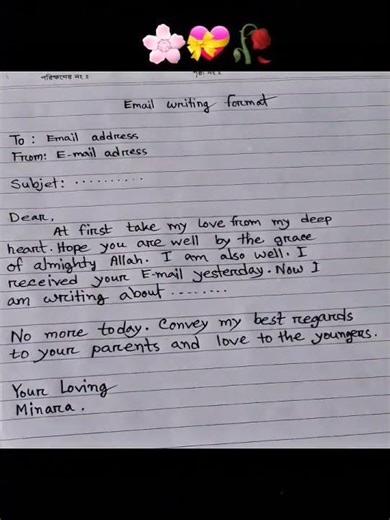 Email writing format
To : Email address
From: E-mail adress
Subjet: ..........
Dear,
At first take my love from my deep
heart. Hope you are well by the grace
of almighty Allah. I am also well. I
received your E-mail yesterday. Now I
am writing about ........
No more today. Convey my best regards
to your parents and love to the youngers.
Your Loving
Minara.